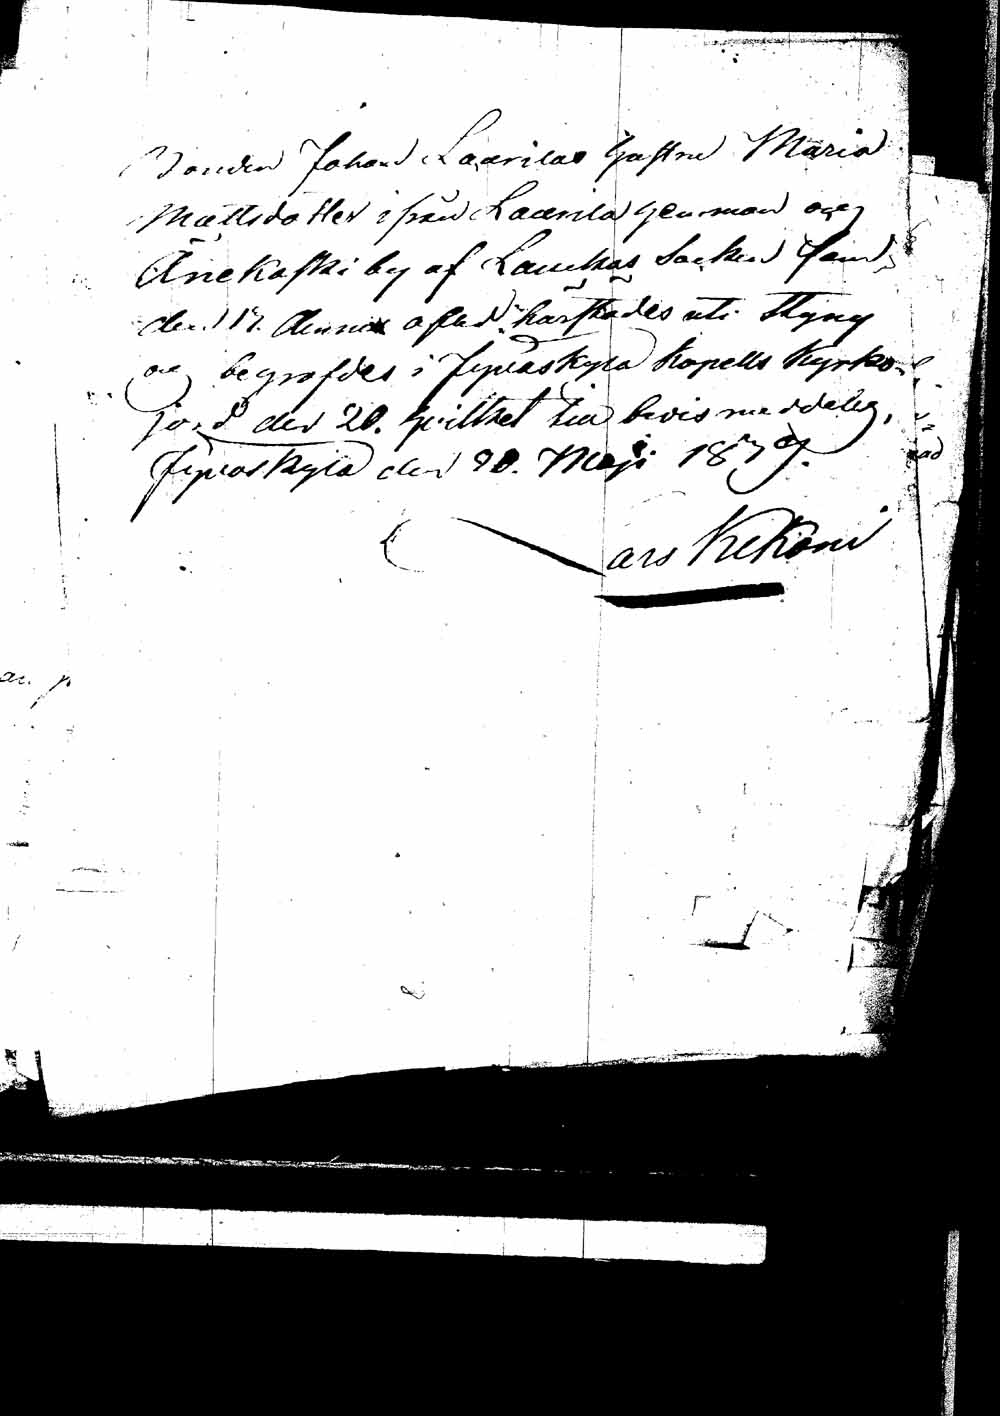 Bonden Johan Laurilas Hustru Maria
Mattsdotter ifrån Laurila hemman och
Änekoski by af Laukas Socken
den 17. dennes afled härstädes uti Styng
och begrofdes i Jyväskylä Kapells Kyrko-
jord den 20. hvilket till bevis meddelas,
Jyväskylä den 20. Maji 1879.
Lars Kekoni